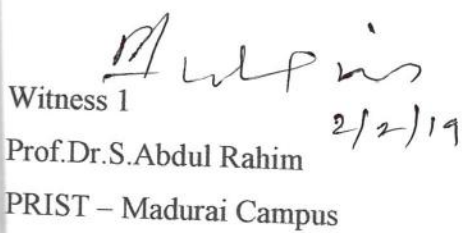 Witness 1
2/2/19
Prof.Dr.S.Abdul Rahim
PRIST – Madurai Campus